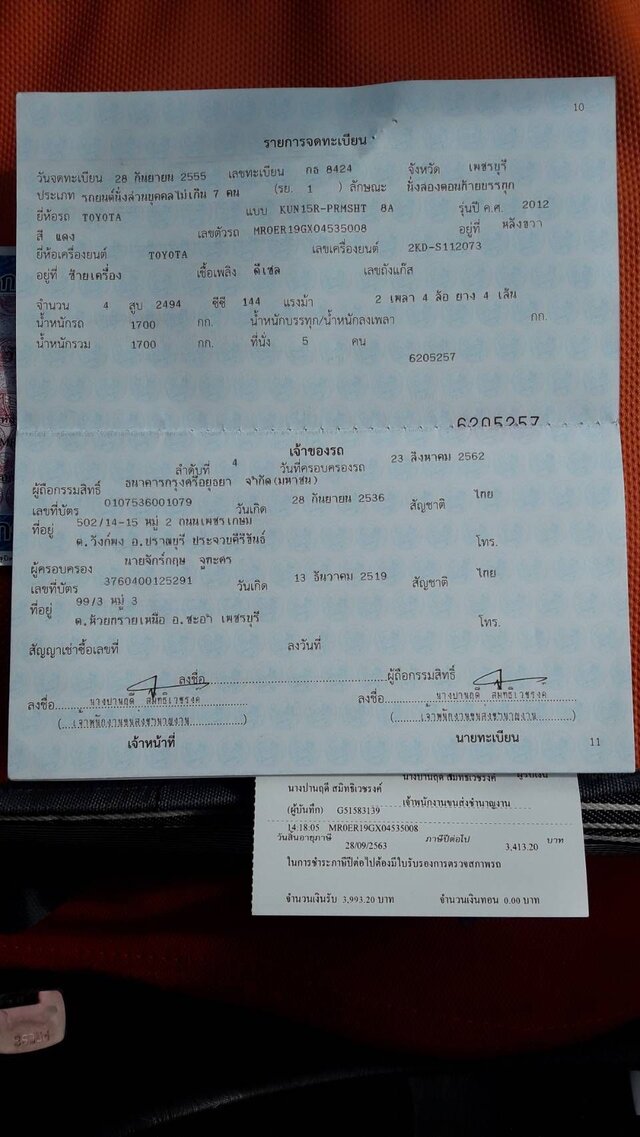 10
รายการจดทะเบียน
วันจดทะเบียน 28 กันยายน 2555 เลขทะเบียน กธ 8424 จังหวัด เพชรบุรี
ประเภท รถยนต์นั่งส่วนบุคคลไม่เกิน 7 คน (รย. 1 ) ลักษณะ นั่งสองตอนท้ายบรรทุก
ยี่ห้อรถ TOYOTA แบบ KUN15R-PRMSHT 8A รุ่นปี ค.ศ. 2012
สี แดง เลขตัวรถ MR0ER19GX04535008 อยู่ที่ หลังขวา
ยี่ห้อเครื่องยนต์ TOYOTA เลขเครื่องยนต์ 2KD-S112073
อยู่ที่ ซ้ายเครื่อง เชื้อเพลิง ดีเซล เลขถังแก๊ส
จำนวน 4 สูบ 2494 ซีซี 144 แรงม้า 2 เพลา 4 ล้อ ยาง 4 เส้น
น้ำหนักรถ 1700 กก. น้ำหนักบรรทุก/น้ำหนักลงเพลา กก.
น้ำหนักรวม 1700 กก. ที่นั่ง 5 คน
6205257
6205257
เจ้าของรถ
ลำดับที่ 4 วันที่ครอบครองรถ 23 สิงหาคม 2562
ผู้ถือกรรมสิทธิ์ ธนาคารกรุงศรีอยุธยา จำกัด(มหาชน)
เลขที่บัตร 0107536001079 วันเกิด 28 กันยายน 2536 สัญชาติ ไทย
ที่อยู่ 502/14-15 หมู่ 2 ถนนเพชรเกษม
ต.วังก์พง อ.ปราณบุรี ประจวบคีรีขันธ์ โทร.
ผู้ครอบครอง นายจักร์กฤษ
เลขที่บัตร 3760400125291 วันเกิด 13 ธันวาคม 2519 สัญชาติ ไทย
ที่อยู่ 99/3 หมู่ 3
ต.ห้วยทรายเหนือ อ.ชะอำ เพชรบุรี โทร.
สัญญาเช่าซื้อเลขที่ ลงวันที่
ลงชื่อ ผู้ถือกรรมสิทธิ์
ลงชื่อ นางปานฤดี สมิทธิเวชรงค์ ลงชื่อ นางปานฤดี สมิทธิเวชรงค์
(เจ้าพนักงานขนส่งชำนาญงาน) (เจ้าพนักงานขนส่งชำนาญงาน)
เจ้าหน้าที่ นายทะเบียน 11
นางปานฤดี สมิทธิเวชรงค์ นางปานฤดี สมิทธิเวชรงค์ ผู้รับเงิน
(ผู้บันทึก) G51583139 เจ้าพนักงานขนส่งชำนาญงาน
14:18:05 MR0ER19GX04535008
วันสิ้นอายุภาษี 28/09/2563 ภาษีปีต่อไป 3,413.20 บาท
ในการชำระภาษีปีต่อไปต้องมีใบรับรองการตรวจสภาพรถ
จำนวนเงินรับ 3,993.20 บาท จำนวนเงินทอน 0.00 บาท